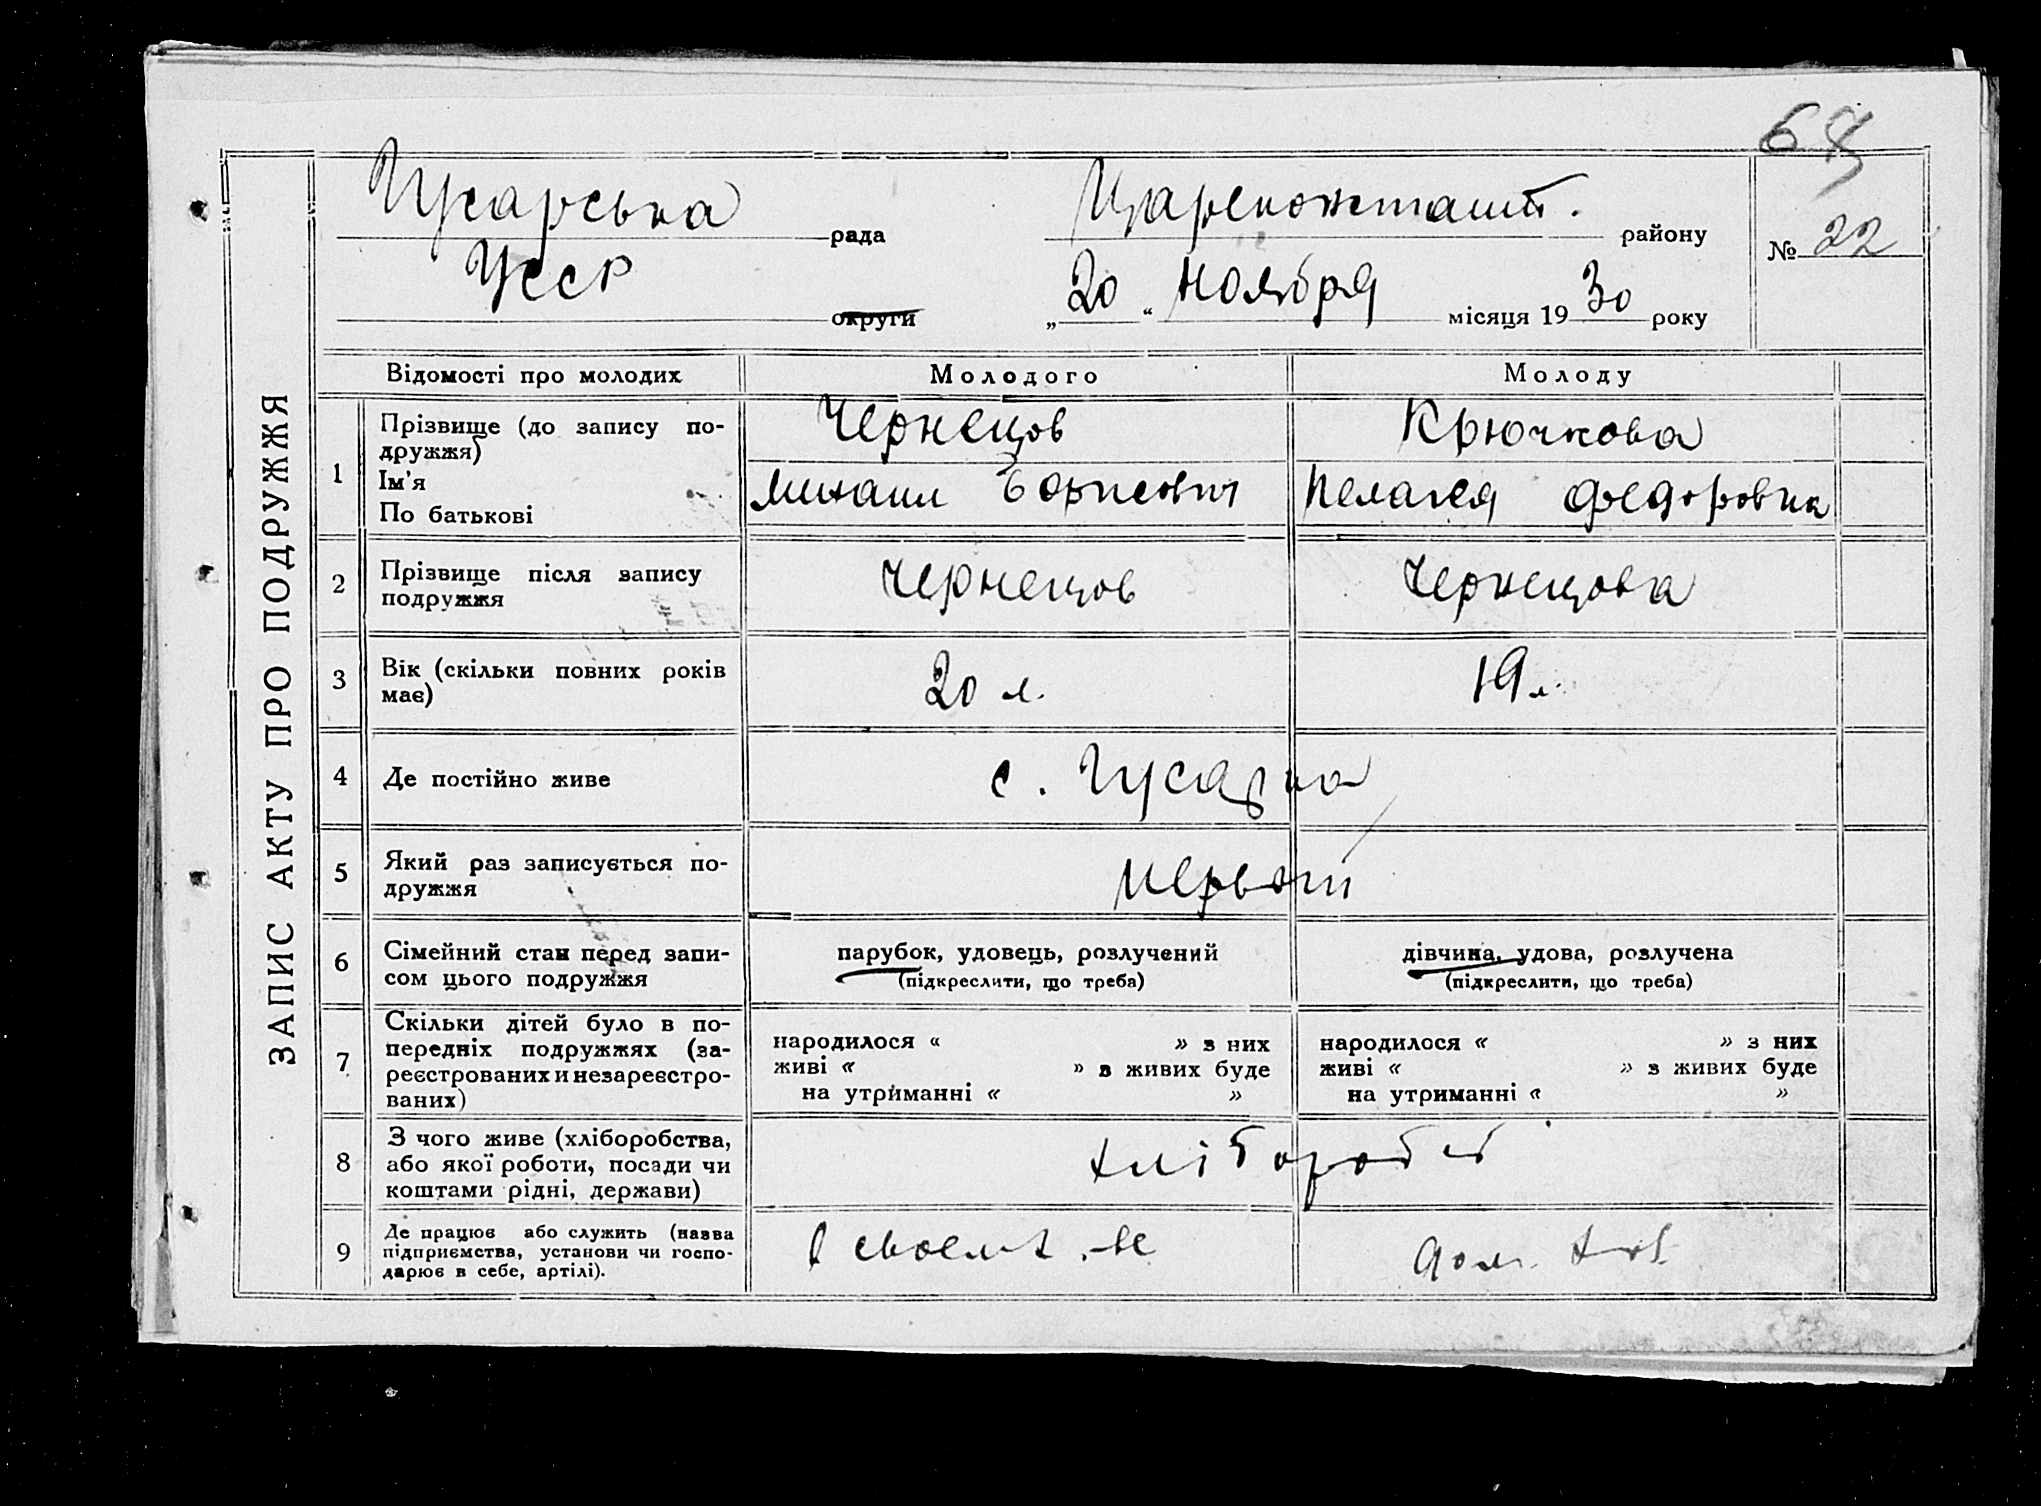 67
Гусарська рада Царекожстант. району
№ 22
УССР округи „20“ Ноября місяця 1930 року
ЗАПИС АКТУ ПРО ПОДРУЖЖЯ
Відомості про молодих Молодого Молоду
1 Прізвище (до запису по-
дружжя) Чернецов Крючкова
Ім'я Михаил Борисович Пелагея Федоровна
По батькові
2 Прізвище після запису
подружжя Чернецов Чернецова
3 Вік (скільки повних років
має) 20 л. 19 л.
4 Де постійно живе с. Гусарка
5 Який раз записується по-
дружжя первый
6 Сімейний стан перед запи-
сом цього подружжя
парубок, удовець, розлучений
(підкреслити, що треба)
дівчина, удова, розлучена
(підкреслити, що треба)
7 Скільки дітей було в по-
передніх подружжях (за-
реєстрованих и незареєстро-
ваних)
народилося « » з них
живі « » з живих буде
на утриманні « »
народилося « » з них
живі « » з живих буде
на утриманні « »
8 З чого живе (хліборобства,
або якої роботи, посади чи
коштами рідні, держави)
хлібороб
9 Де працює або служить (назва
підприємства, установи чи госпо-
дарює в себе, артілі).
в своем х-ве
дом. хоз.